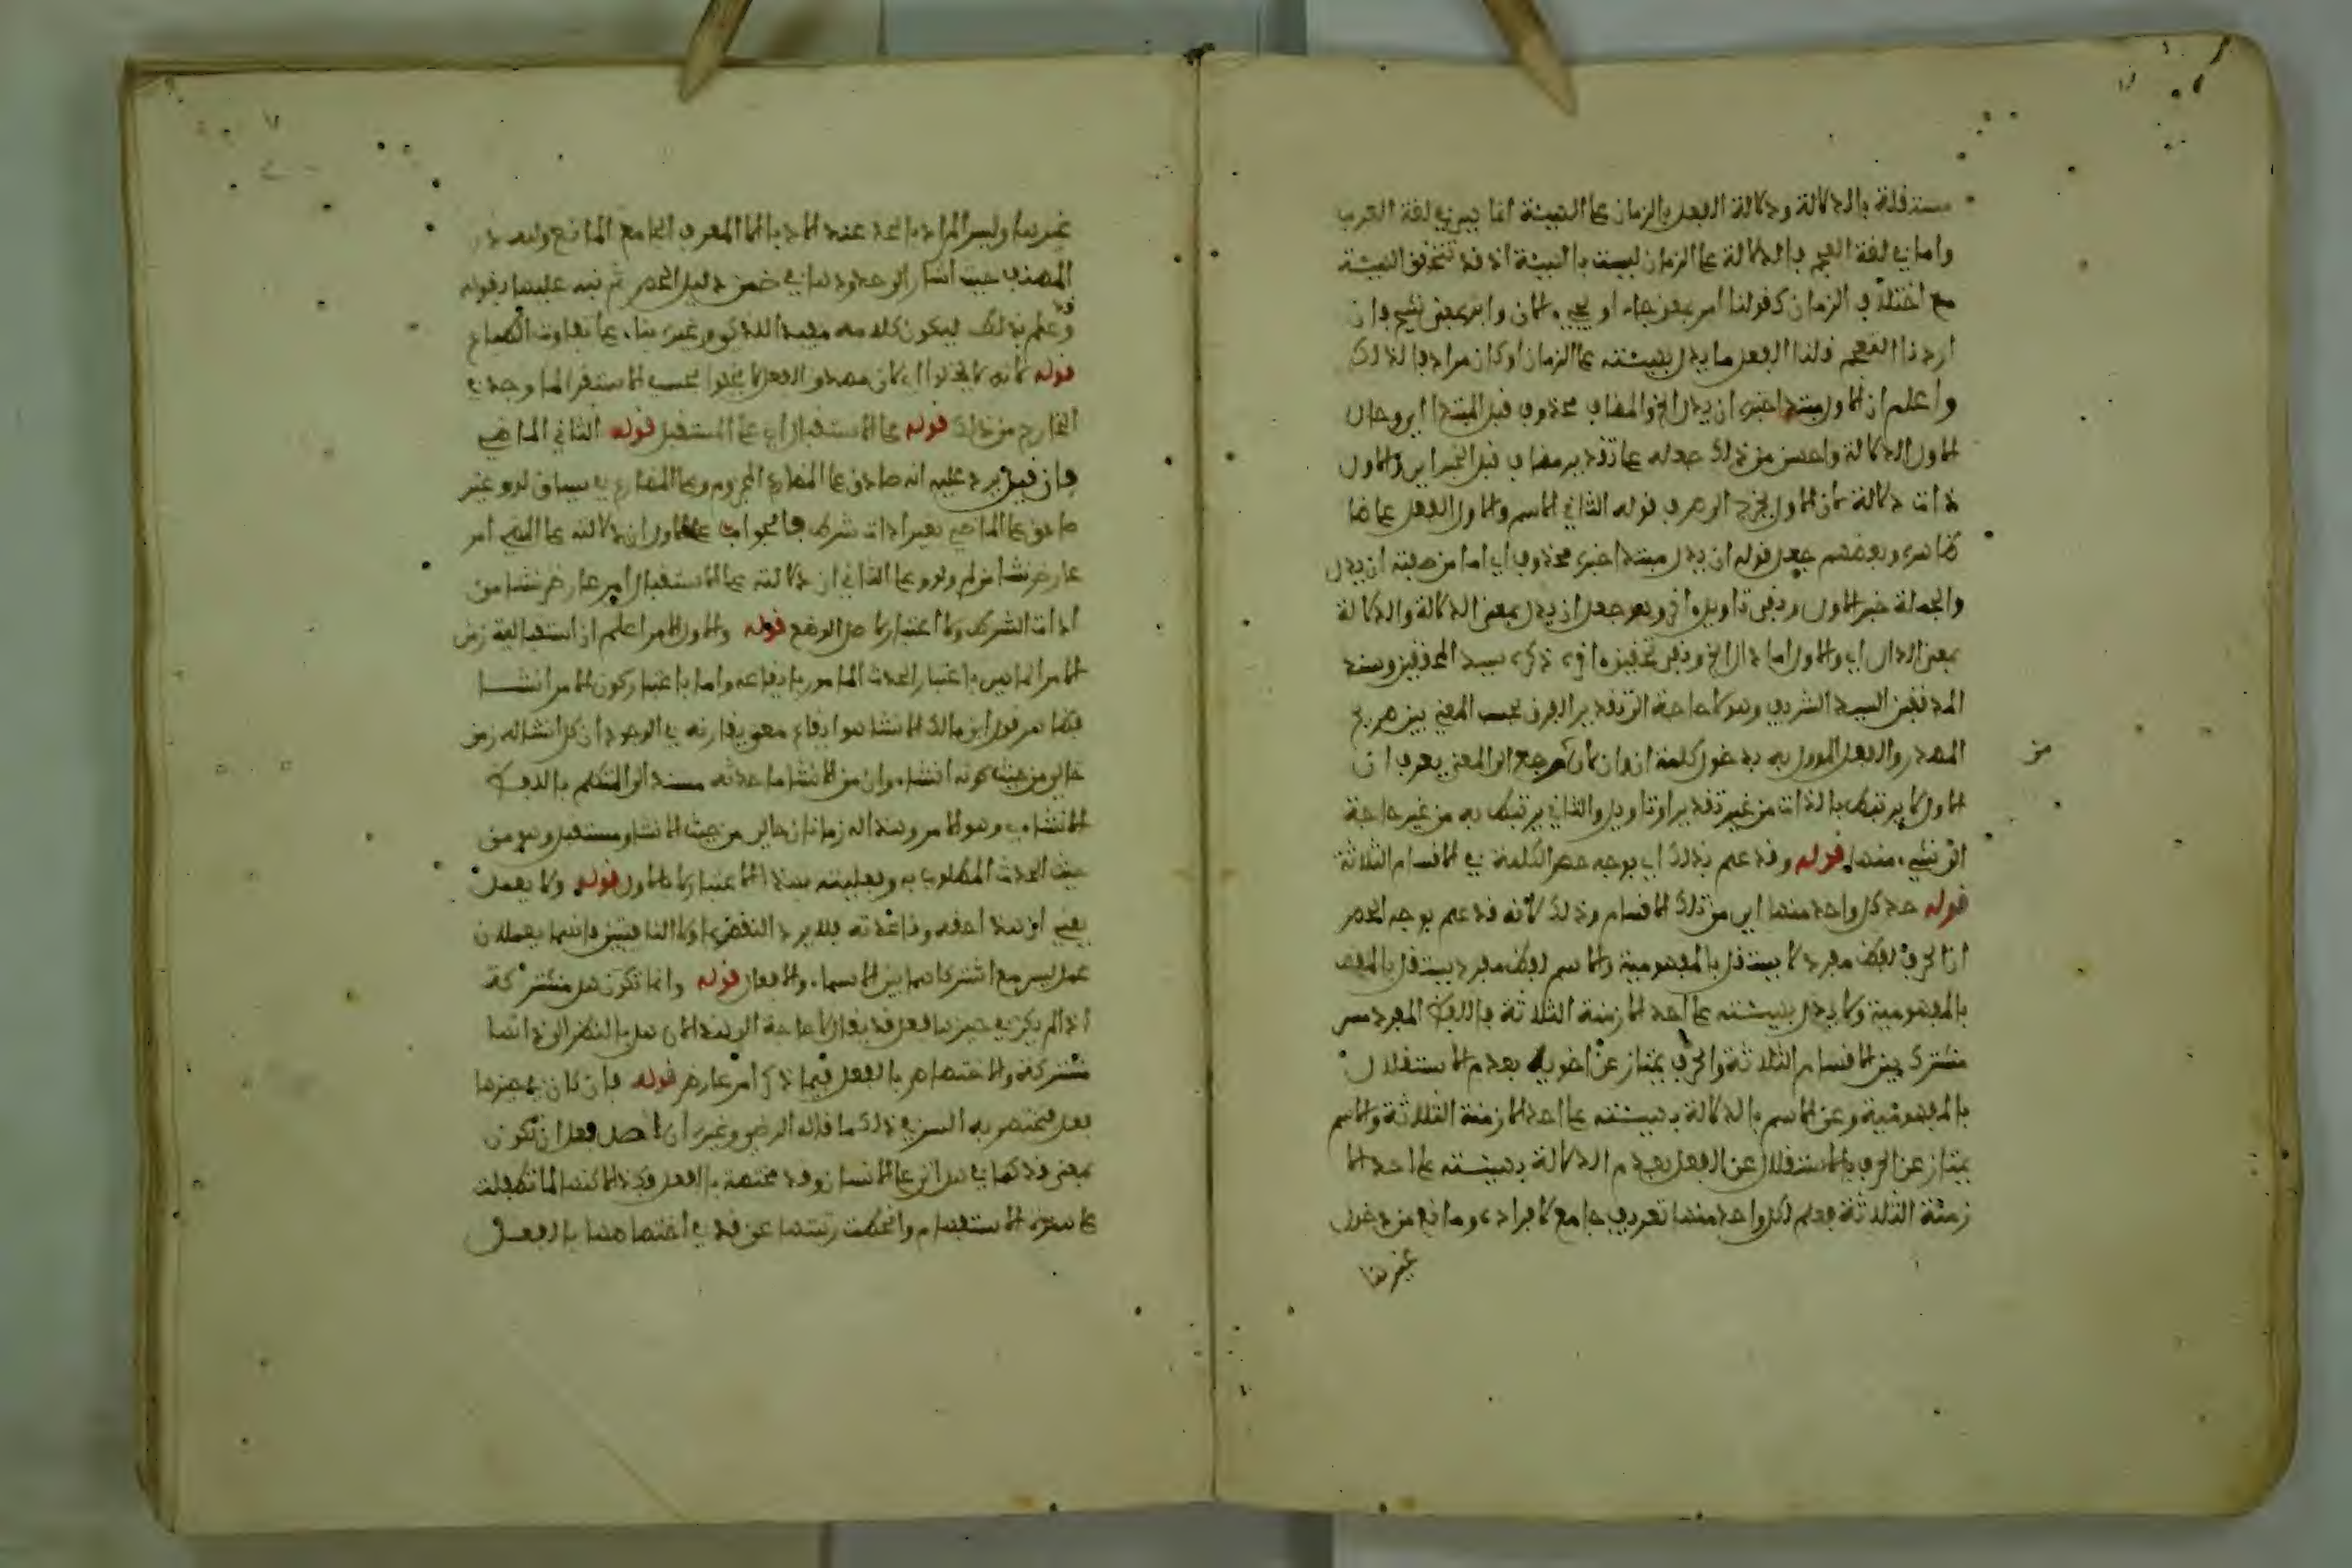 مستقلة بالدلالة ودلالة الفعل بالزمان على الهيئة انما هي في لغة العرب
واما في لغة العجم فالدلالة على الزمان ليست بالهيئة اذ قد تتحقق الهيئة
مع اختلاف الزمان كقولنا امر بمعنى جاء او
اردنا العجم قلنا الفعل ما يدل بهيئته على الزمان او كان مرادف لذلك
واعلم ان الاول مبتدا خبره ان يدل الخ والمضاف محذوف قبل المبتدا اي وحال
الاول الدلالة واحسن من ذلك جعله على تقدير مضاف قبل الخبر اي والاول
ذات دلالة لان الاول يخرج الحرف قوله الثاني الاسم والاول الفعل على ما
ظاهره وبعضهم جعل قوله ان يدل مبتدا خبره محذوف اي اما من صفته ان يدل
والجملة خبر الاول وبقي تاويل اخر وهو جعل ان يدل بمعنى الدلالة والدلالة
بمعنى الدال اي والاول اما دال الخ وبقي تحقيق اخر ذكره سيد المحققين وسند
المدققين السيد الشريف وهو لا حاجة الى تقدير الفرق بحسب المعنى بين صريح
المصدر والفعل المؤول به بدخول كلمة ان وان كان مرجع الى المعنى يعرف ان
من
الاول لا يرتبط بالذات من غير تقدير او تاويل والثاني يرتبط به من غير حاجة
الى شيء منهما قوله وقد علم بذلك اي بوجه حصر الكلمة في الاقسام الثلاثة
قوله حد كل واحد منها اي من تلك الاقسام وذلك لانه قد علم بوجه الحصر
ان الحرف لفظ مفرد لا يستقل بالمفهومية والاسم لفظ مفرد يستقل بالمفهـ
بالمفهومية ولا يدل بهيئته على احد الازمنة الثلاثة فاللفظ المفرد
مشترك بين الاقسام الثلاثة والحرف يمتاز عن اخويه بعدم الاستقلال
بالمفهومية وعن الاسم بالدلالة بهيئته على احد الازمنة الثلاثة والاسم
يمتاز عن الحرف بالاستقلال عن الفعل بعدم الدلالة بهيئته على احد الا
زمنة الثلاثة فعلم لكل واحد منها تعريف جامع لافراده ومانع من دخول
غيرها
غيرها وليس المراد بالحد عند الادباء الا المعرف الجامع المانع ولله در
المصنف حيث اشار الى حدودها في ضمن دليل الحصر ثم نبه عليها بقوله
وقد علم بذلك ليكون كلامه مفيدا للذكي وغيره بناء على تفاوت الطباع
قوله لانه لا يخلوا لان مصدق الفعل لا يخلوا بحسب الاستقرا لما وجد في
الخارج من ذلك قوله على الاستقبال اي على المستقبل قوله الثاني الماضي
فان قيل يرد عليه انه صادق على المضارع المجزوم وعلى المضارع في سياق لو وغير
صادق على الماضي بعد ادات شرط فالجواب على الاول ان دلالته على المضي امر
عارض نشا من لم ولو وعلى الثاني ان دلالته على الاستقبال امر عارض نشا من
ادات الشرط ولا اعتبار لاصل الوضع قوله والاول الامر اعلم ان استقبالية زمن
الامر انما هي باعتبار الحدث المامور بايقاعه واما باعتبار كون الامر انشــا
فظاهر قول ابن مالك الانشا هو ايقاع معنى يقارنه في الوجود ان كل انشا له زمن
حالي من حيث كونه انشاء وان من الانشا ما حدثه مسند الى المتكلم باللفظ
الانشاءي وهو الامر وهذا له زمانان حالي من حيث الانشا ومستقبل وهو من
حيث الحدث المطلوب به وفعليته بهذا الاعتبار لا بالاول قوله ولا يعمل
يعني ان هذا احقه وقاعدته فلا يرد النقض بما ولا النافيتين فانهما يعملان
عمل ليس مع اشتراكهما بين الاسماء والافعال قوله وانما تكون هل مشتركة
اذا لم يكن في حيزها فعل قد يقال لا حاجة الى هذا لان هل بالنظر الى ذاتها
مشتركة والاختصاص بالفعل فيما ذكر امر عارض قوله فان كان في حيزها
فعل فتختص به السر في ذلك ما قاله الرضي وغيره ان اصل هل ان تكون
بمعنى قد كما في هل اتى على الانسان وقد مختصة بالفعل فكذا هل لكنها لما تطفلت
على همزة الاستفهام وانحطت رتبتها عن قد في اختصاصها بالفعــل